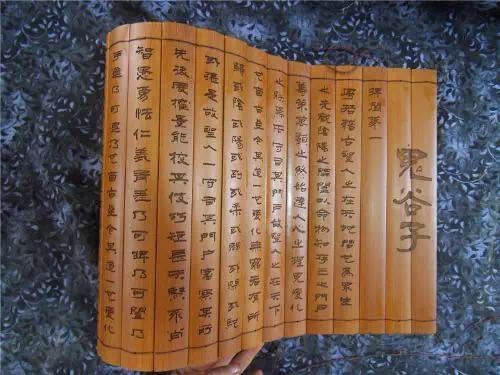 鬼谷子
捭闔第一
粵若稽古聖人之在天地間也為眾生
之先觀陰陽之開闔以命物知存亡之門戶
籌策萬類之終始達人心之理見變化
之朕焉而守司其門戶故聖人之在天下
也自古至今其道一也變化無窮各有所
歸或陰或陽或柔或剛或開或閉或弛
或張是故聖人一守司其門戶審察其所
先後度權量能校其伎巧短長夫賢不肖
智愚勇怯仁義差乃可捭乃可闔乃
乃可也自古至今其道一也變化